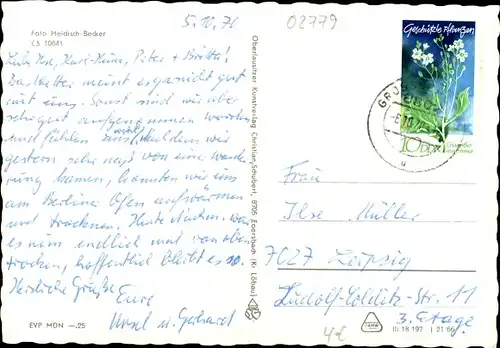 Foto Heidisch-Becker
CS 10641
5.10.70
02779
Liebe Ilse, Karl-Heinz, Peter + Britta!
Das Wetter meint es gar nicht gut
mit uns. Sonst sind wir aber
sehr gut aufgenommen worden
und fühlen uns wohl. Nachdem wir
gestern sehr naß von einer Wande
rung kamen, konnten wir uns
am Berliner Ofen aufwärmen
und trocknen. Heute war
es nun endlich mal von oben
trocken, hoffentlich bleibt es so.
Herzliche Grüße
Eure
Ursel u. Gerhard
EVP MDN —.25
Oberlausitzer Kunstverlag Christian Schubert, 8705 Ebersbach (Kr. Löbau)
Geschützte Pflanzen
10 DDR
Frau
Ilse Müller
7027 Leipzig
Ludolf-Colditz-Str. 11
3. Etage
4€
III 18 192 J 21/66